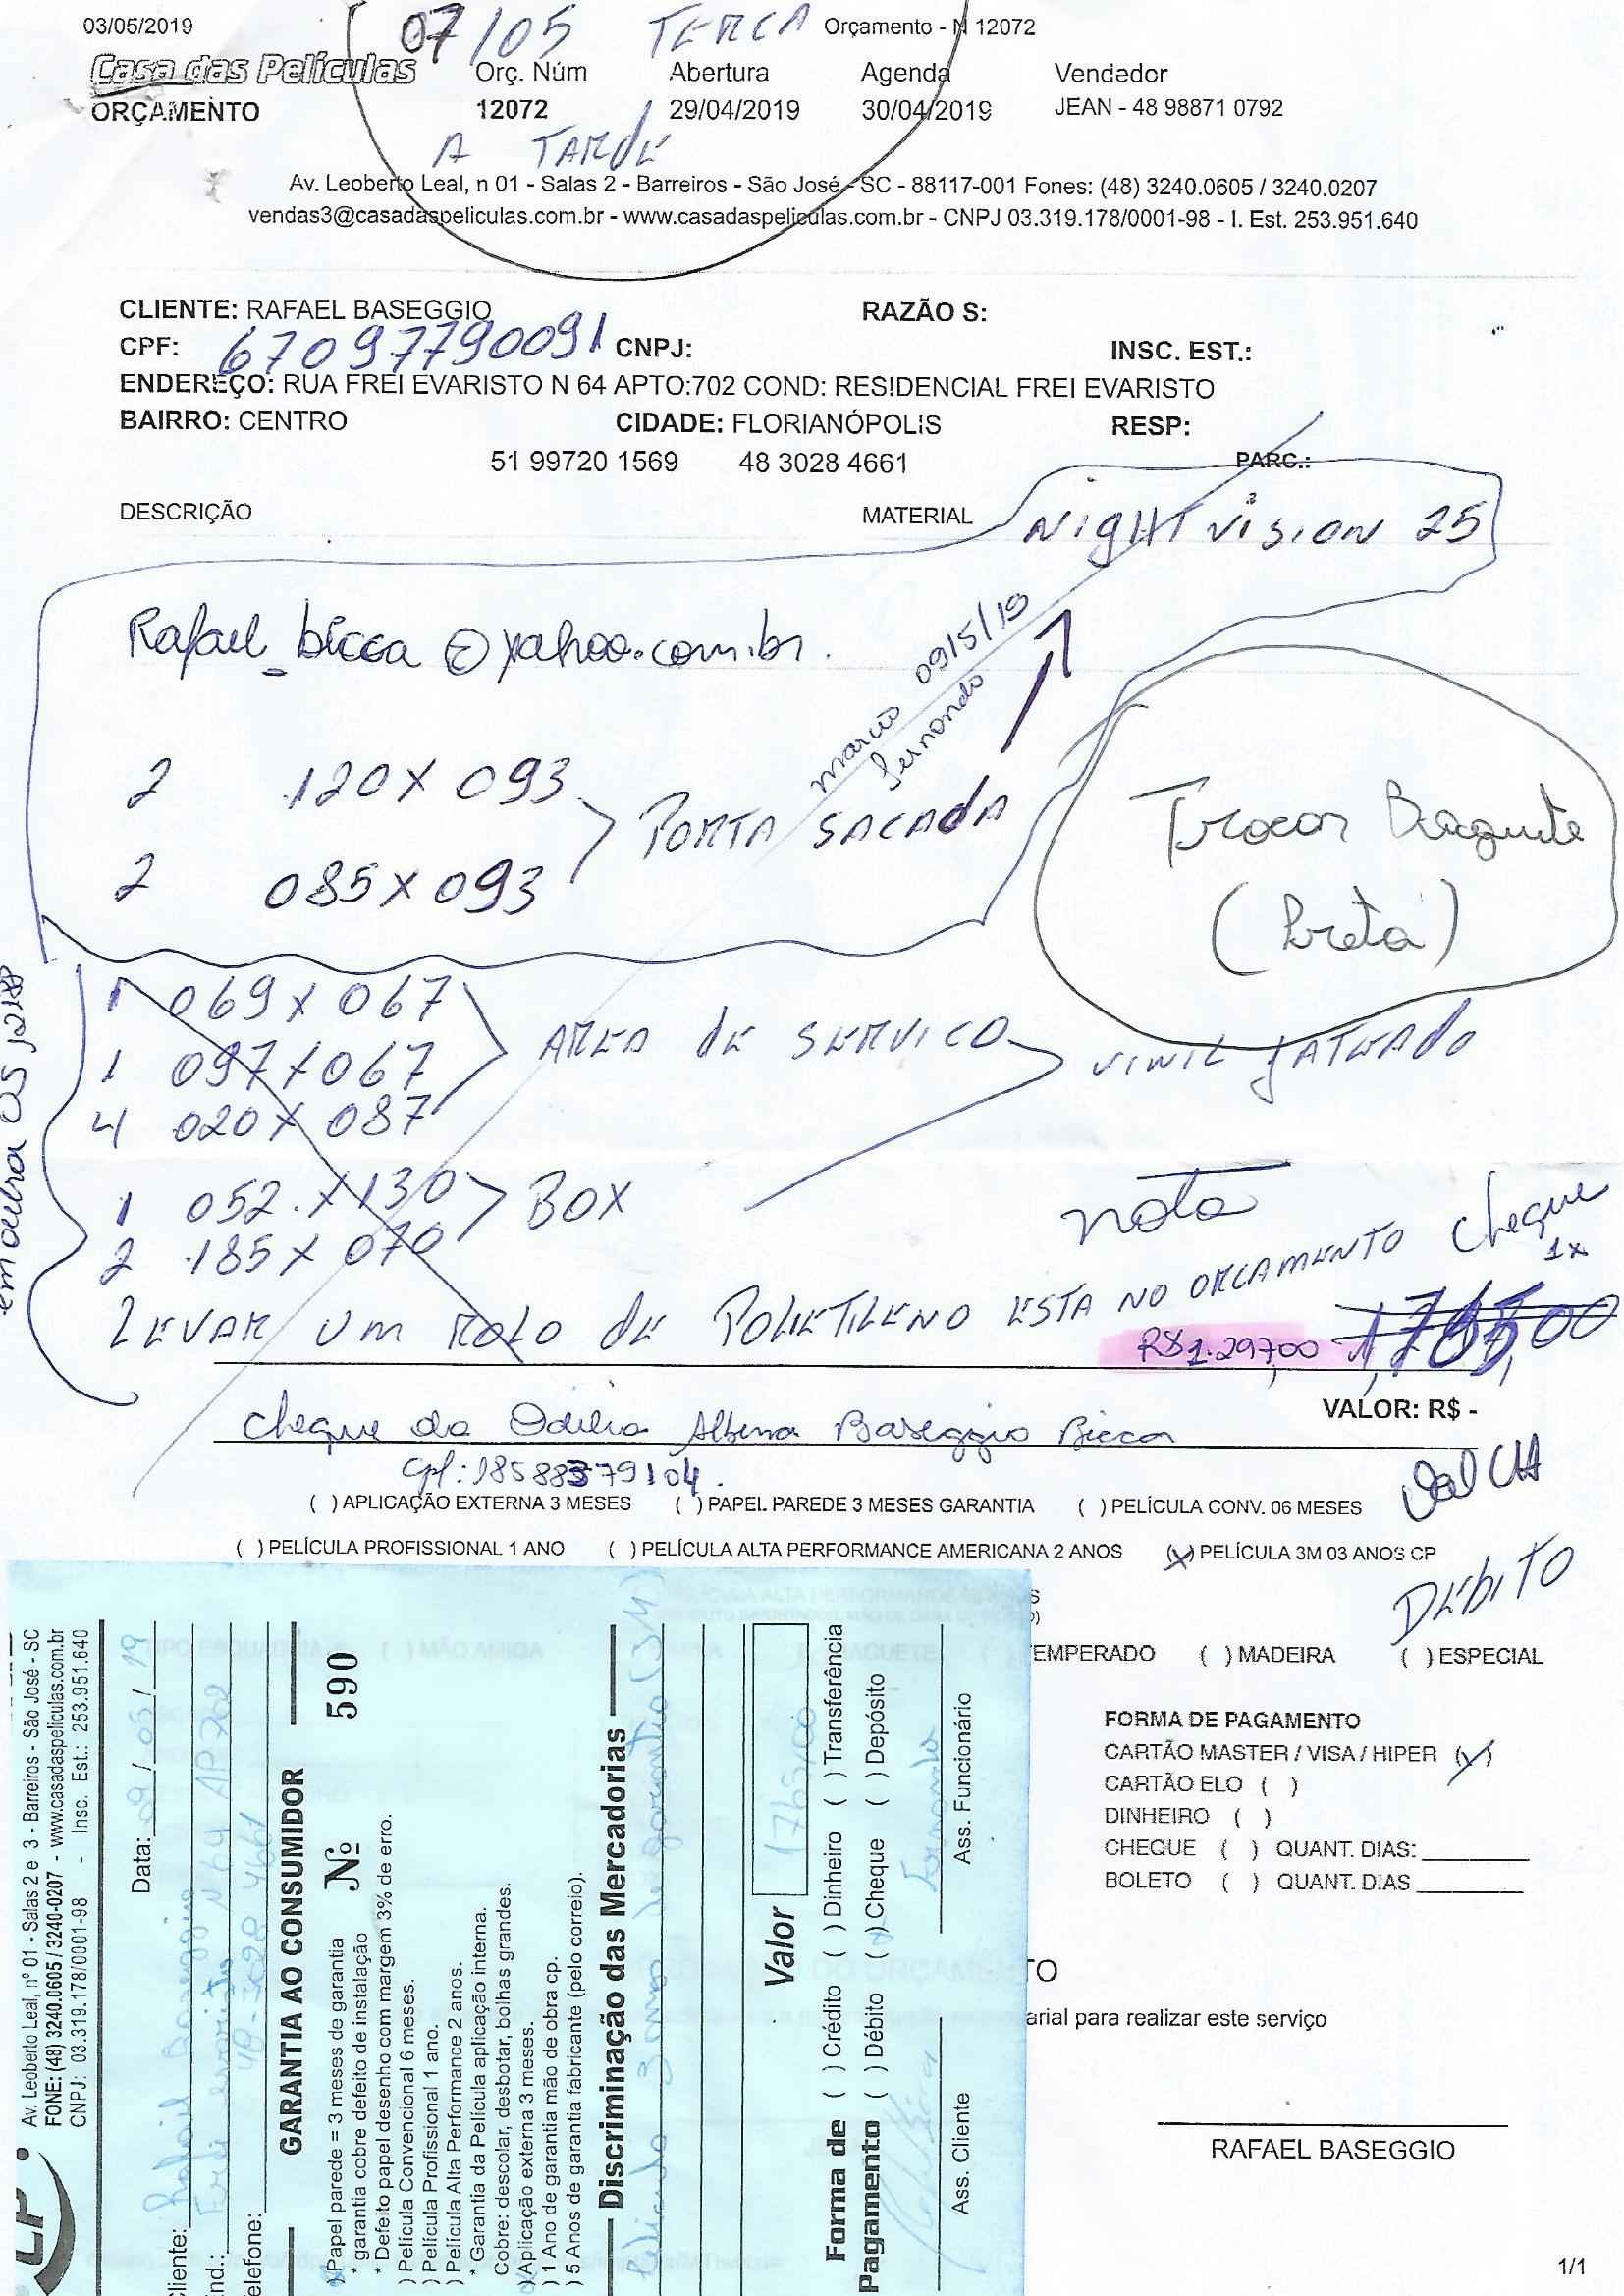 03/05/2019
07/05 TERCA
Orçamento - N 12072
Casa das Películas
ORÇAMENTO
Orç. Núm Abertura Agenda Vendedor
12072 29/04/2019 30/04/2019 JEAN - 48 98871 0792
A TARDE
Av. Leoberto Leal, n 01 - Salas 2 - Barreiros - São José - SC - 88117-001 Fones: (48) 3240.0605 / 3240.0207
vendas3@casadaspeliculas.com.br - www.casadaspeliculas.com.br - CNPJ 03.319.178/0001-98 - I. Est. 253.951.640
CLIENTE: RAFAEL BASEGGIO RAZÃO S:
CPF: 67097790091 CNPJ: INSC. EST.:
ENDEREÇO: RUA FREI EVARISTO N 64 APTO:702 COND: RESIDENCIAL FREI EVARISTO
BAIRRO: CENTRO CIDADE: FLORIANÓPOLIS RESP:
51 99720 1569 48 3028 4661 PARC.:
DESCRIÇÃO MATERIAL NiGHT ViSiON 25
Rafael_bicca@yahoo.com.br.
marcio 09/5/19
fernando
2 120 X 093
PORTA SACADA
2 085 X 093
Trocar Baguete
(Preta)
1 069 X 067
1 097 X 067
AREA DE SERVICO
VINIL JATEADO
4 020 X 087
em outra OS
1 052 X 130
BOX
2 185 X 070
nota
cheque
1x
LEVAR UM ROLO DE POLIETILENO ESTA NO ORCAMENTO
R$ 1.297,00
VALOR: R$ -
cheque da Odilia Albina Baseggio Bicca
cpf: 18588379104.
( ) APLICAÇÃO EXTERNA 3 MESES ( ) PAPEL PAREDE 3 MESES GARANTIA ( ) PELÍCULA CONV. 06 MESES
( ) PELÍCULA PROFISSIONAL 1 ANO ( ) PELÍCULA ALTA PERFORMANCE AMERICANA 2 ANOS (X) PELÍCULA 3M 03 ANOS CP
DÉBITO
EMPERADO ( ) MADEIRA ( ) ESPECIAL
FORMA DE PAGAMENTO
CARTÃO MASTER / VISA / HIPER (X)
CARTÃO ELO ( )
DINHEIRO ( )
CHEQUE ( ) QUANT. DIAS:
BOLETO ( ) QUANT. DIAS
TO
arial para realizar este serviço
RAFAEL BASEGGIO
1/1
Av. Leoberto Leal, nº 01 - Salas 2 e 3 - Barreiros - São José - SC
FONE: (48) 3240.0605 / 3240-0207 - www.casadaspeliculas.com.br
CNPJ: 03.319.178/0001-98 - Insc. Est.: 253.951.640
Data: 09/05/19
liente: Rafael Baseggio
nd.: Frei evaristo N 64 AP 702
elefone: 48-3028 4661
GARANTIA AO CONSUMIDOR
Nº 590
) Papel parede = 3 meses de garantia
* garantia cobre defeito de instalação
* Defeito papel desenho com margem 3% de erro.
) Película Convencional 6 meses.
) Película Profissional 1 ano.
) Película Alta Performance 2 anos.
* Garantia da Película aplicação interna.
Cobre: descolar, desbotar, bolhas grandes.
) Aplicação externa 3 meses.
) 1 Ano de garantia mão de obra cp.
) 5 Anos de garantia fabricante (pelo correio).
Discriminação das Mercadorias
Pelicula 3 anos de garantia (3M)
Valor 1765,00
Forma de Pagamento
( ) Crédito ( ) Dinheiro ( ) Transferência
( ) Débito (x) Cheque ( ) Depósito
Fernando
Ass. Cliente Ass. Funcionário